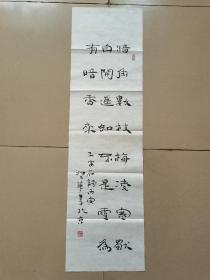 牆角數枝梅凌寒獨
自開遙知不是雪為
有暗香來
王安石詩